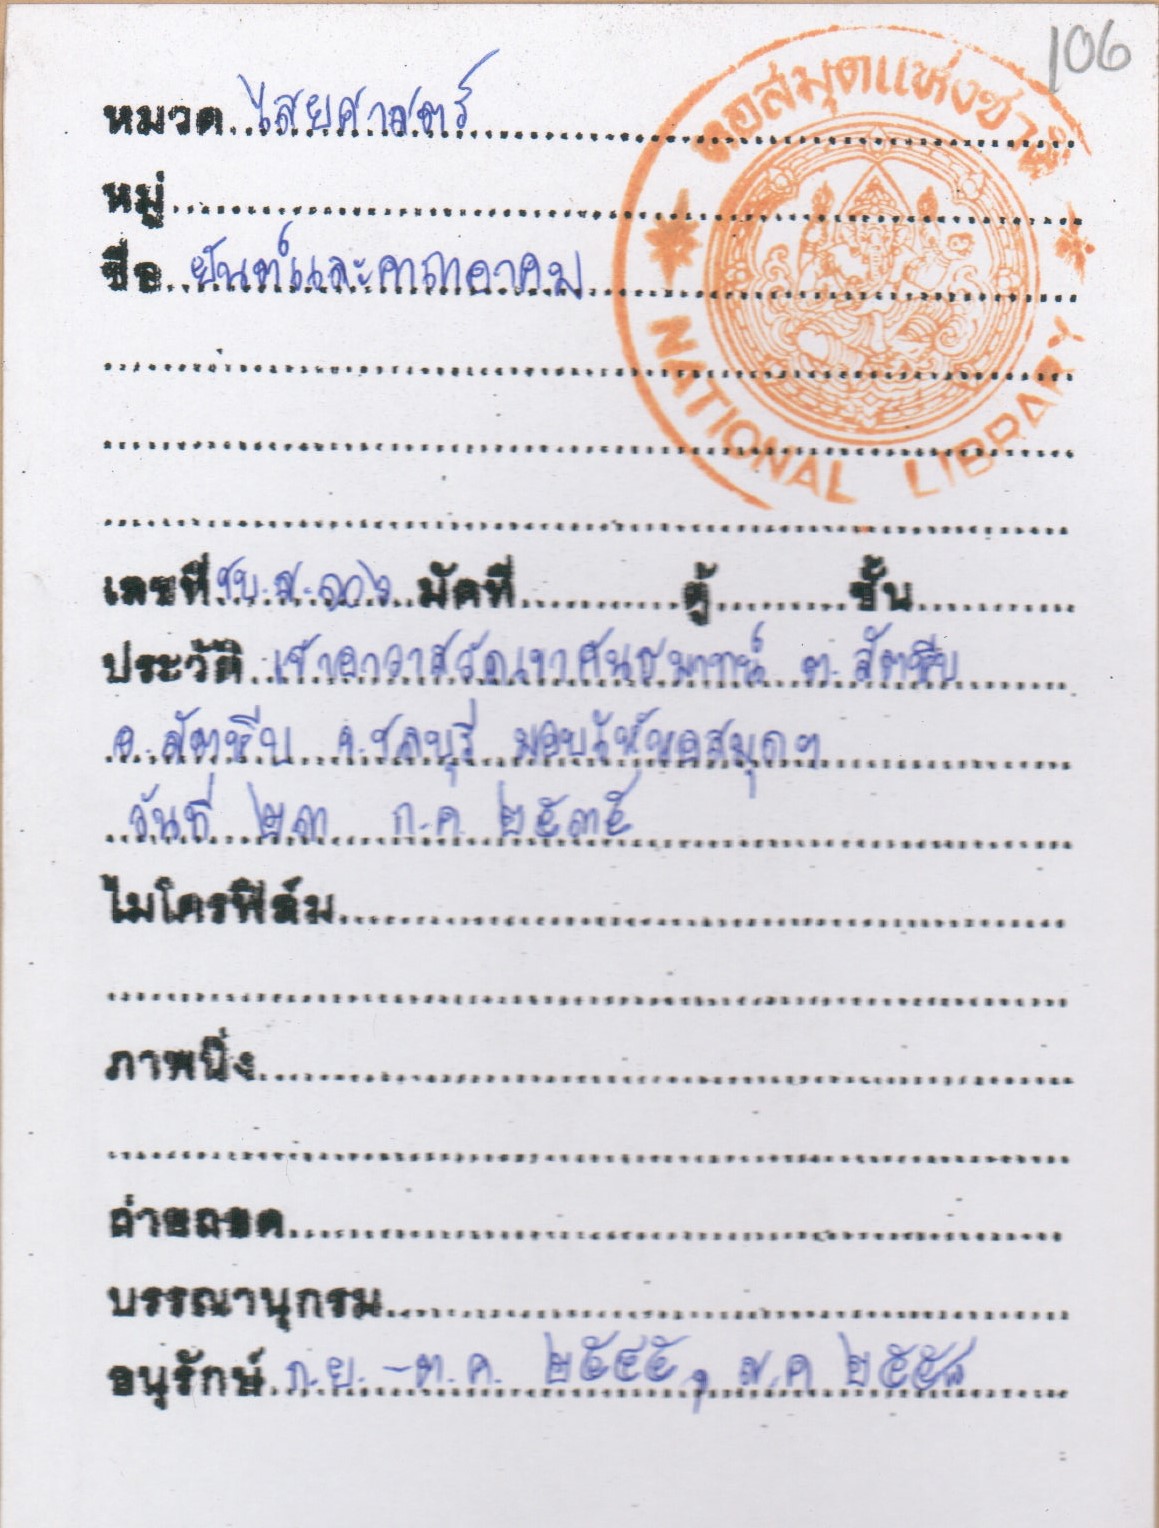 106
หอสมุดแห่งชาติ
NATIONAL LIBRARY
หมวด ไสยศาสตร์
หมู่
ชื่อ ยันต์และคาถาอาคม
เลขที่ ชบ.ส.๑๐๖ มัดที่ ตู้ ชั้น
ประวัติ เจ้าอาวาสวัดเขาคันธมาทน์ ต. สัตหีบ
อ. สัตหีบ จ.ชลบุรี มอบให้หอสมุดฯ
วันที่ ๒๓ ก.ค. ๒๕๓๕
ไมโครฟิล์ม
ภาพนิ่ง
ถ่ายถอด
บรรณานุกรม
อนุรักษ์ ก.ย. - ต.ค. ๒๕๔๕, ส.ค ๒๕๕๘